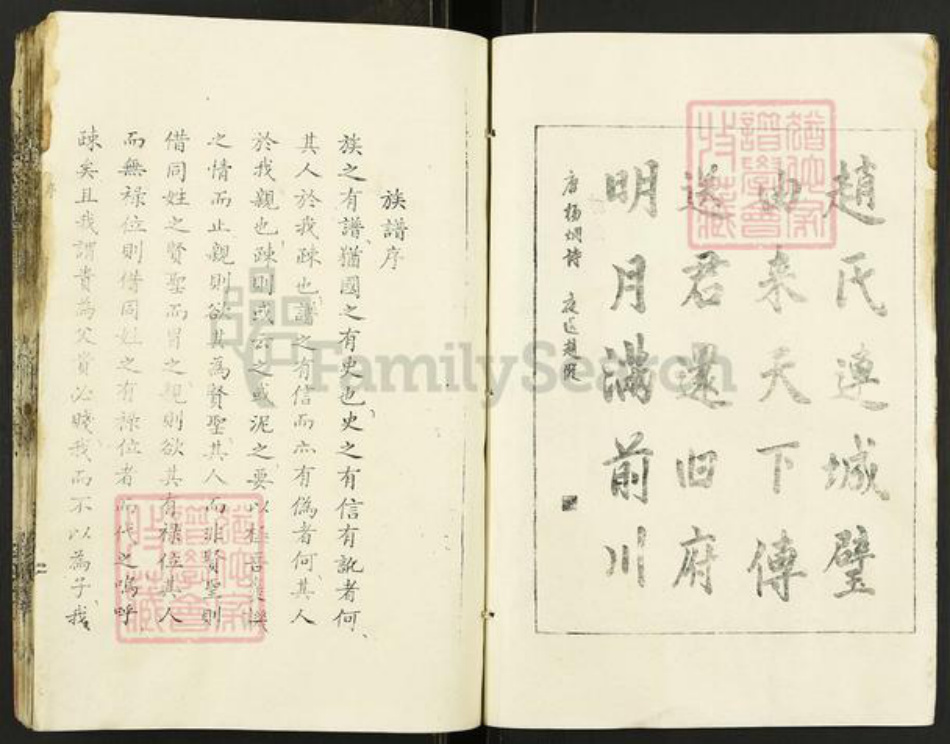 趙氏連城璧
由来天下傳
送君還旧府
明月滿前川
唐楊炯詩 夜送趙縱
族譜序
族之有譜、猶國之有史也、史之有信有訛者何、
其人於我疎也、譜之有信而亦有偽者何、其人
於我親也、疎則或公之或泥之、要以
之情而止、親則欲其為賢聖、其人而非賢聖、則
借同姓之賢聖而冒之、親則欲其有祿位、其人
而無祿位、則借同姓之有祿位者而代之、嗚呼
疎矣、且我謂貴為父貴必賤我、而不以為子、我
FamilySearch